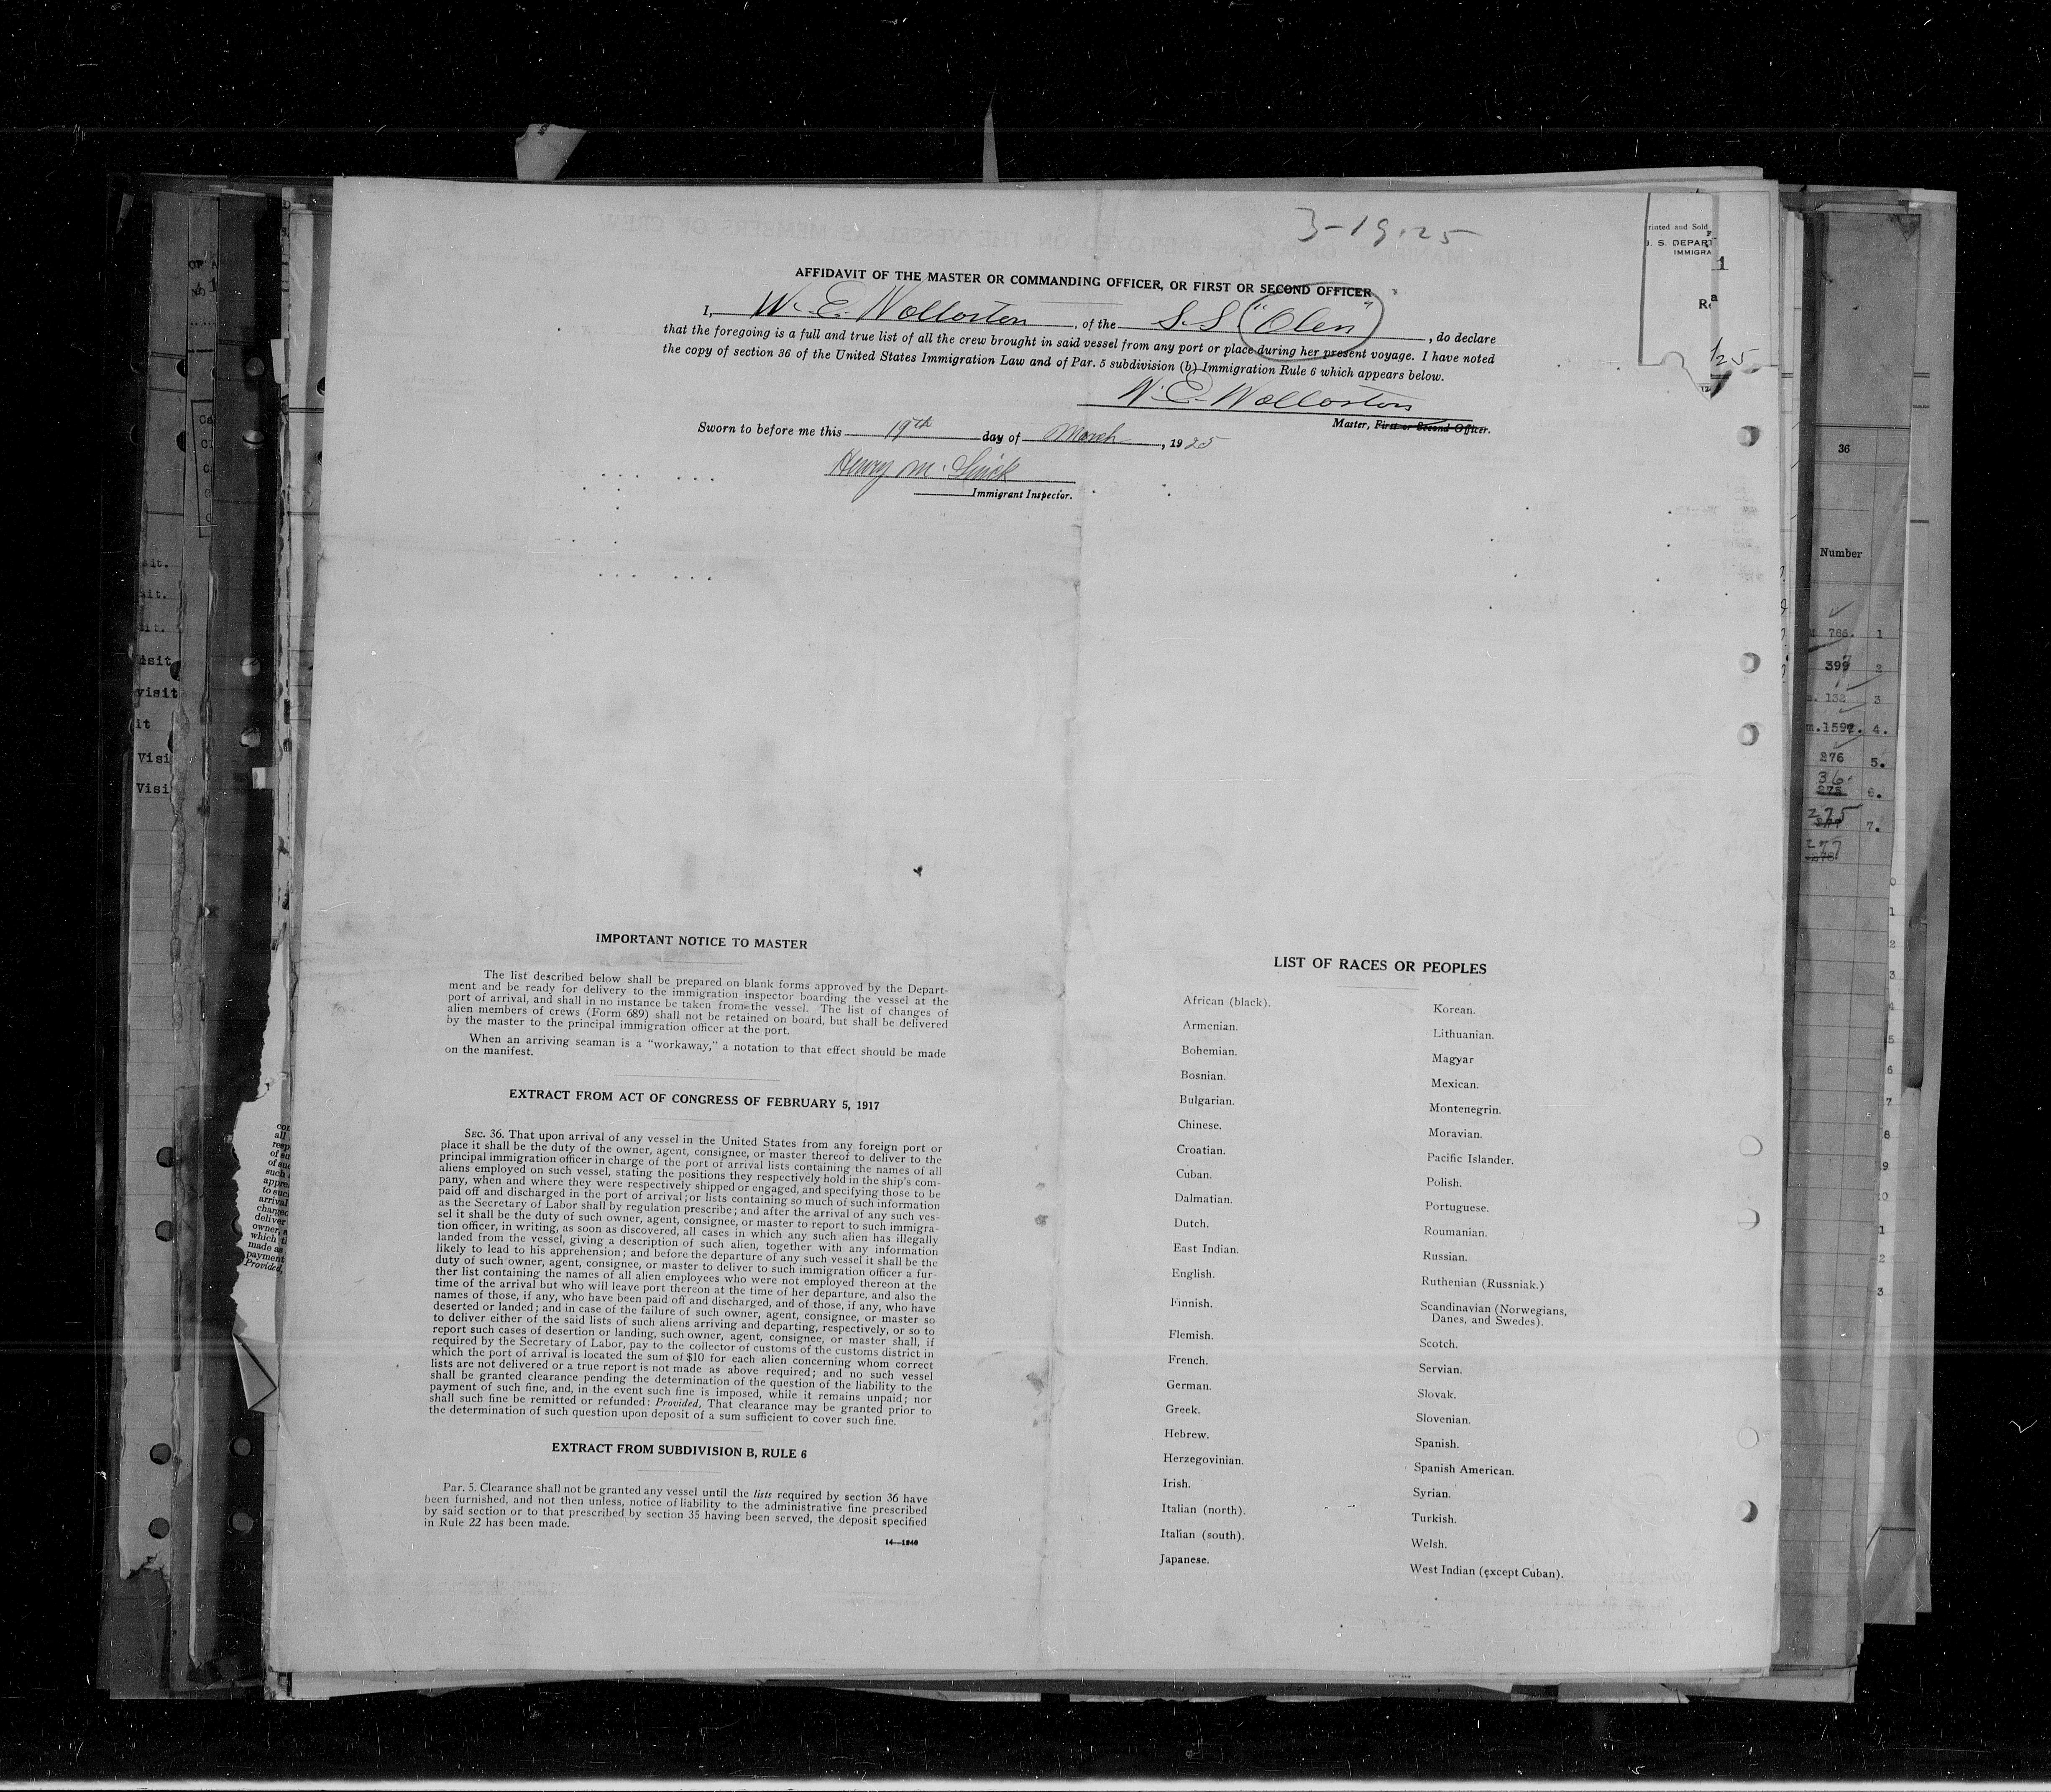 3-19-25
AFFIDAVIT OF THE MASTER OR COMMANDING OFFICER, OR FIRST OR SECOND OFFICER
I, W. E. Wollaston, of the S.S "Olen", do declare
that the foregoing is a full and true list of all the crew brought in said vessel from any port or place during her present voyage. I have noted
the copy of section 36 of the United States Immigration Law and of Par. 5 subdivision (b) Immigration Rule 6 which appears below.
W. E. Wollaston
Master, First or Second Officer.
Sworn to before me this 19th day of March, 1925
Henry M.
Immigrant Inspector.
rinted and Sold
U. S. DEPART
IMMIGRA
IMPORTANT NOTICE TO MASTER
The list described below shall be prepared on blank forms approved by the Depart-
ment and be ready for delivery to the immigration inspector boarding the vessel at the
port of arrival, and shall in no instance be taken from the vessel. The list of changes of
alien members of crews (Form 689) shall not be retained on board, but shall be delivered
by the master to the principal immigration officer at the port.
When an arriving seaman is a "workaway," a notation to that effect should be made
on the manifest.
EXTRACT FROM ACT OF CONGRESS OF FEBRUARY 5, 1917
SEC. 36. That upon arrival of any vessel in the United States from any foreign port or
place it shall be the duty of the owner, agent, consignee, or master thereof to deliver to the
principal immigration officer in charge of the port of arrival lists containing the names of all
aliens employed on such vessel, stating the positions they respectively hold in the ship's com-
pany, when and where they were respectively shipped or engaged, and specifying those to be
paid off and discharged in the port of arrival; or lists containing so much of such information
as the Secretary of Labor shall by regulation prescribe; and after the arrival of any such ves-
sel it shall be the duty of such owner, agent, consignee, or master to report to such immigra-
tion officer, in writing, as soon as discovered, all cases in which any such alien has illegally
landed from the vessel, giving a description of such alien, together with any information
likely to lead to his apprehension; and before the departure of any such vessel it shall be the
duty of such owner, agent, consignee, or master to deliver to such immigration officer a fur-
ther list containing the names of all alien employees who were not employed thereon at the
time of the arrival but who will leave port thereon at the time of her departure, and also the
names of those, if any, who have been paid off and discharged, and of those, if any, who have
deserted or landed; and in case of the failure of such owner, agent, consignee, or master so
to deliver either of the said lists of such aliens arriving and departing, respectively, or so to
report such cases of desertion or landing, such owner, agent, consignee, or master shall, if
required by the Secretary of Labor, pay to the collector of customs of the customs district in
which the port of arrival is located the sum of $10 for each alien concerning whom correct
lists are not delivered or a true report is not made as above required; and no such vessel
shall be granted clearance pending the determination of the question of the liability to the
payment of such fine, and, in the event such fine is imposed, while it remains unpaid; nor
shall such fine be remitted or refunded: Provided, That clearance may be granted prior to
the determination of such question upon deposit of a sum sufficient to cover such fine.
EXTRACT FROM SUBDIVISION B, RULE 6
Par. 5. Clearance shall not be granted any vessel until the lists required by section 36 have
been furnished, and not then unless, notice of liability to the administrative fine prescribed
by said section or to that prescribed by section 35 having been served, the deposit specified
in Rule 22 has been made.
14—1240
LIST OF RACES OR PEOPLES
African (black).
Armenian.
Bohemian.
Bosnian.
Bulgarian.
Chinese.
Croatian.
Cuban.
Dalmatian.
Dutch.
East Indian.
English.
Finnish.
Flemish.
French.
German.
Greek.
Hebrew.
Herzegovinian.
Irish.
Italian (north).
Italian (south).
Japanese.
Korean.
Lithuanian.
Magyar
Mexican.
Montenegrin.
Moravian.
Pacific Islander.
Polish.
Portuguese.
Roumanian.
Russian.
Ruthenian (Russniak.)
Scandinavian (Norwegians,
Danes, and Swedes).
Scotch.
Servian.
Slovak.
Slovenian.
Spanish.
Spanish American.
Syrian.
Turkish.
Welsh.
West Indian (except Cuban).
36
Number
786. 1
399 2
132 3
1597. 4.
276 5.
36
275 6.
275
7.
277